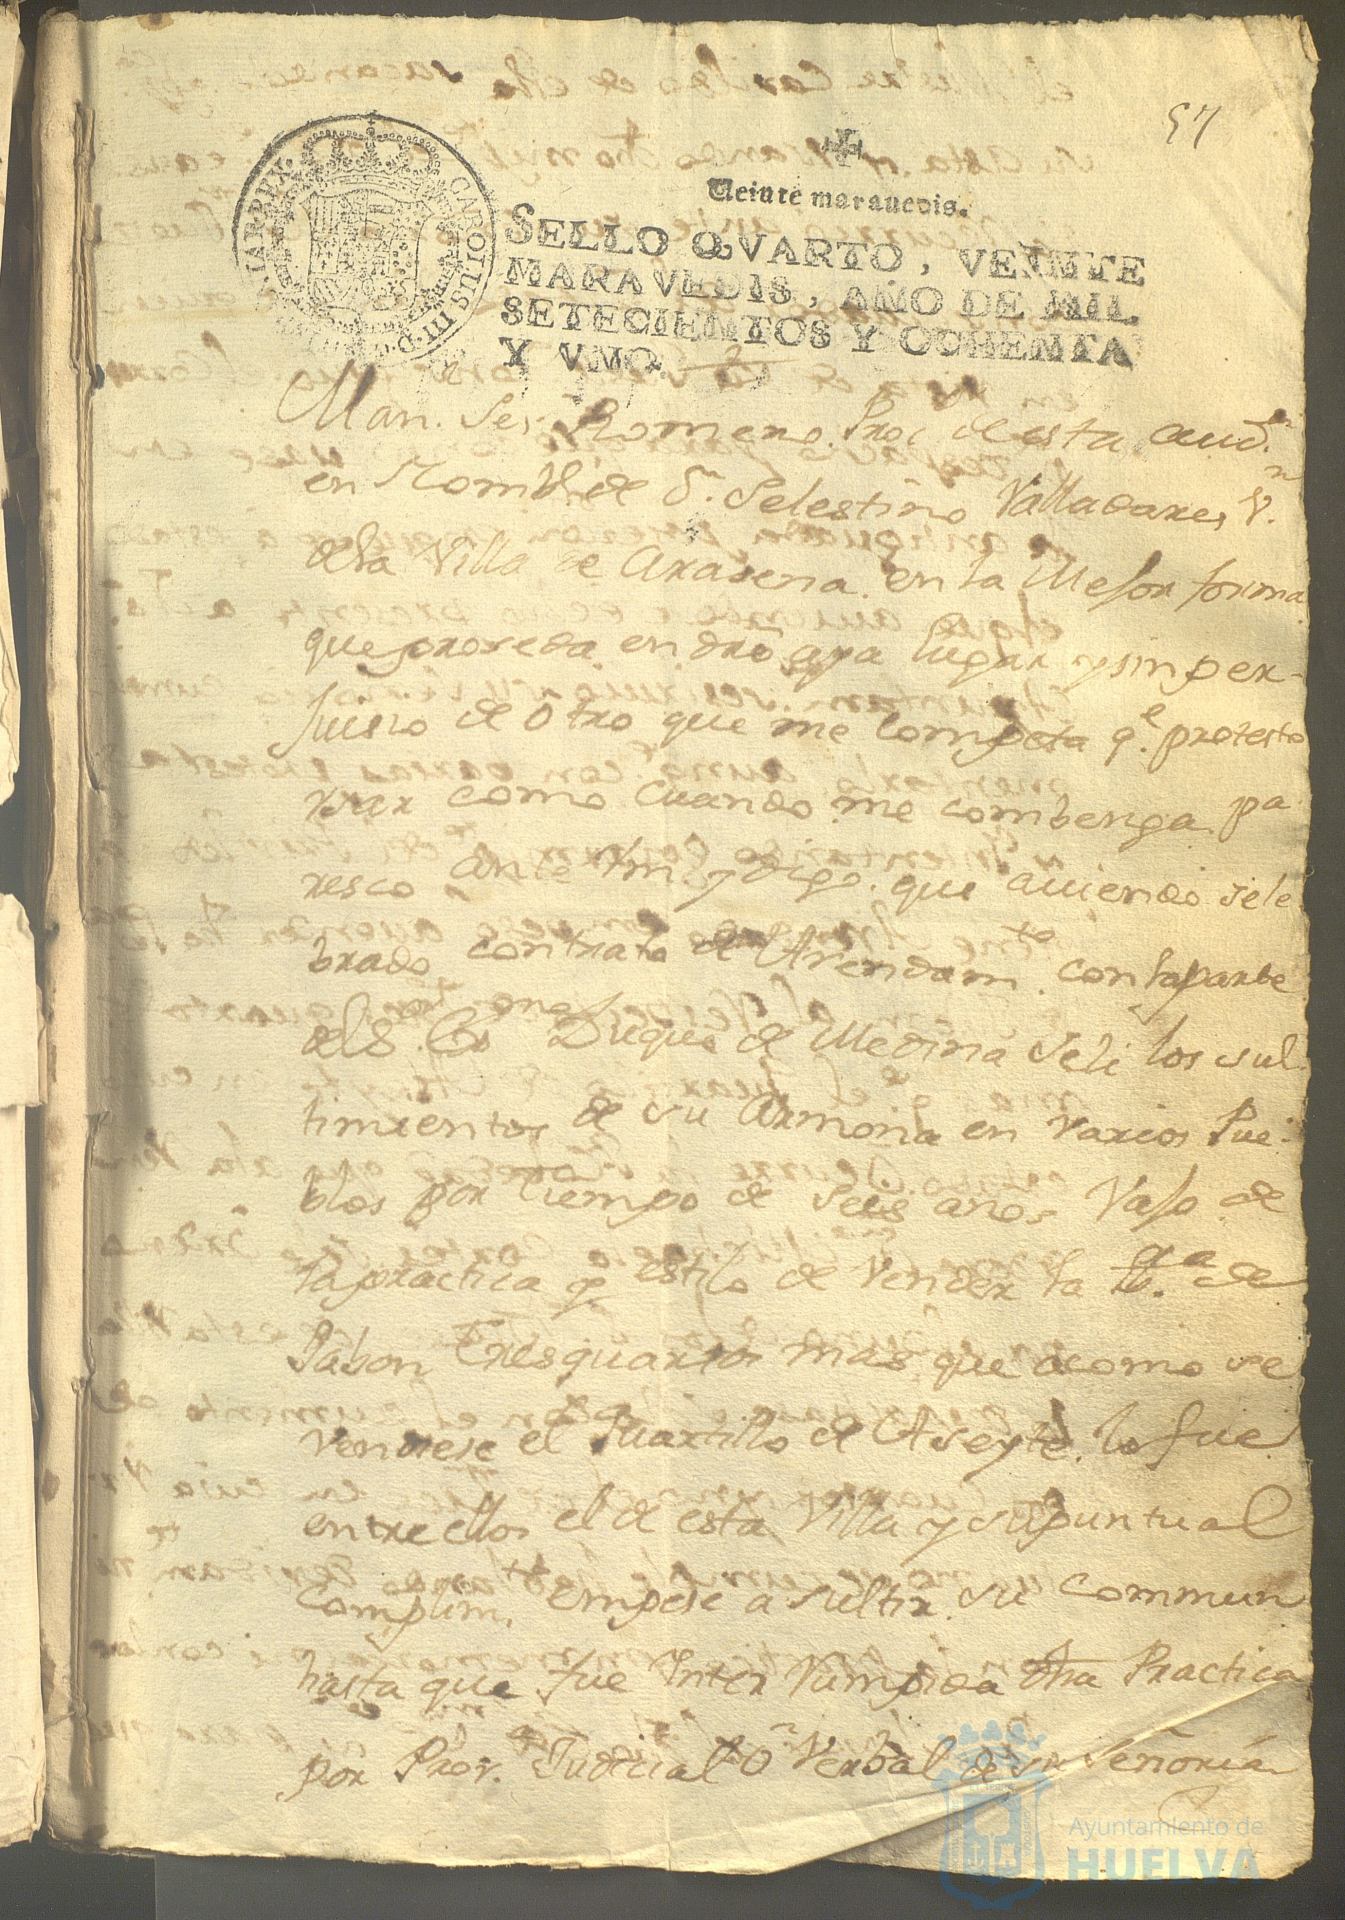 57
Veinte marauedis.
SELLO QVARTO, VEINTE
MARAVEDIS, AÑO DE MIL
SETECIENTOS Y OCHENTA
Y VNO.
CAROLUS III D. G. HISPANIAR REX
Man. Romero Proc. de esta aud.n
en Nombe. de Dn. Selestino Valladares V.n
dela Villa de Arasena en la Mejor forma
que proseda en dro aya lugar y sin per-
Juisio de otro que me competa q.e protesto
vsar como cuando me combenga pa
resco ante Vm. y digo que auiendo sele
brado contrato de Arendam.to con la parte
del S. Ex.mo Duque de Medina Seli los sul-
timientos de su Armona en Varios Pue-
blos por tiempo de seis años Vajo de
la practica y estilo de Vender la lb.a de
Jabon tres quartos mas que acomo se
Vendiese el Quartillo de Aseyte. lo fue
entre ellos el de esta Villa y su puntual
Complim.to empese a sultir su Commun
hasta que fue Inter Rumpida dha Practica
por Prov.a Judicial o Verbal de su Señoria
Ayuntamiento de
HUELVA